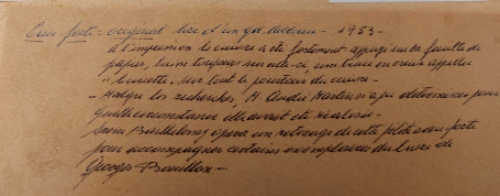 Eau-forte: tiré d'un gd. tableau - 1953 -
à l'impression le cuivre a été fortement appuyé sur la feuille de
papier, laissant sur celle-ci, une trace en creux appelée
"cuvette", sur tout le pourtour du cuivre -
- Malgré les recherches, M. André Martin n'a pu déterminer pour
quelle circonstance elle avait été réalisée -
opéra un retirage de cette petite eau-forte
pour accompagner certains exemplaires du livre de
Georges Bouillon -